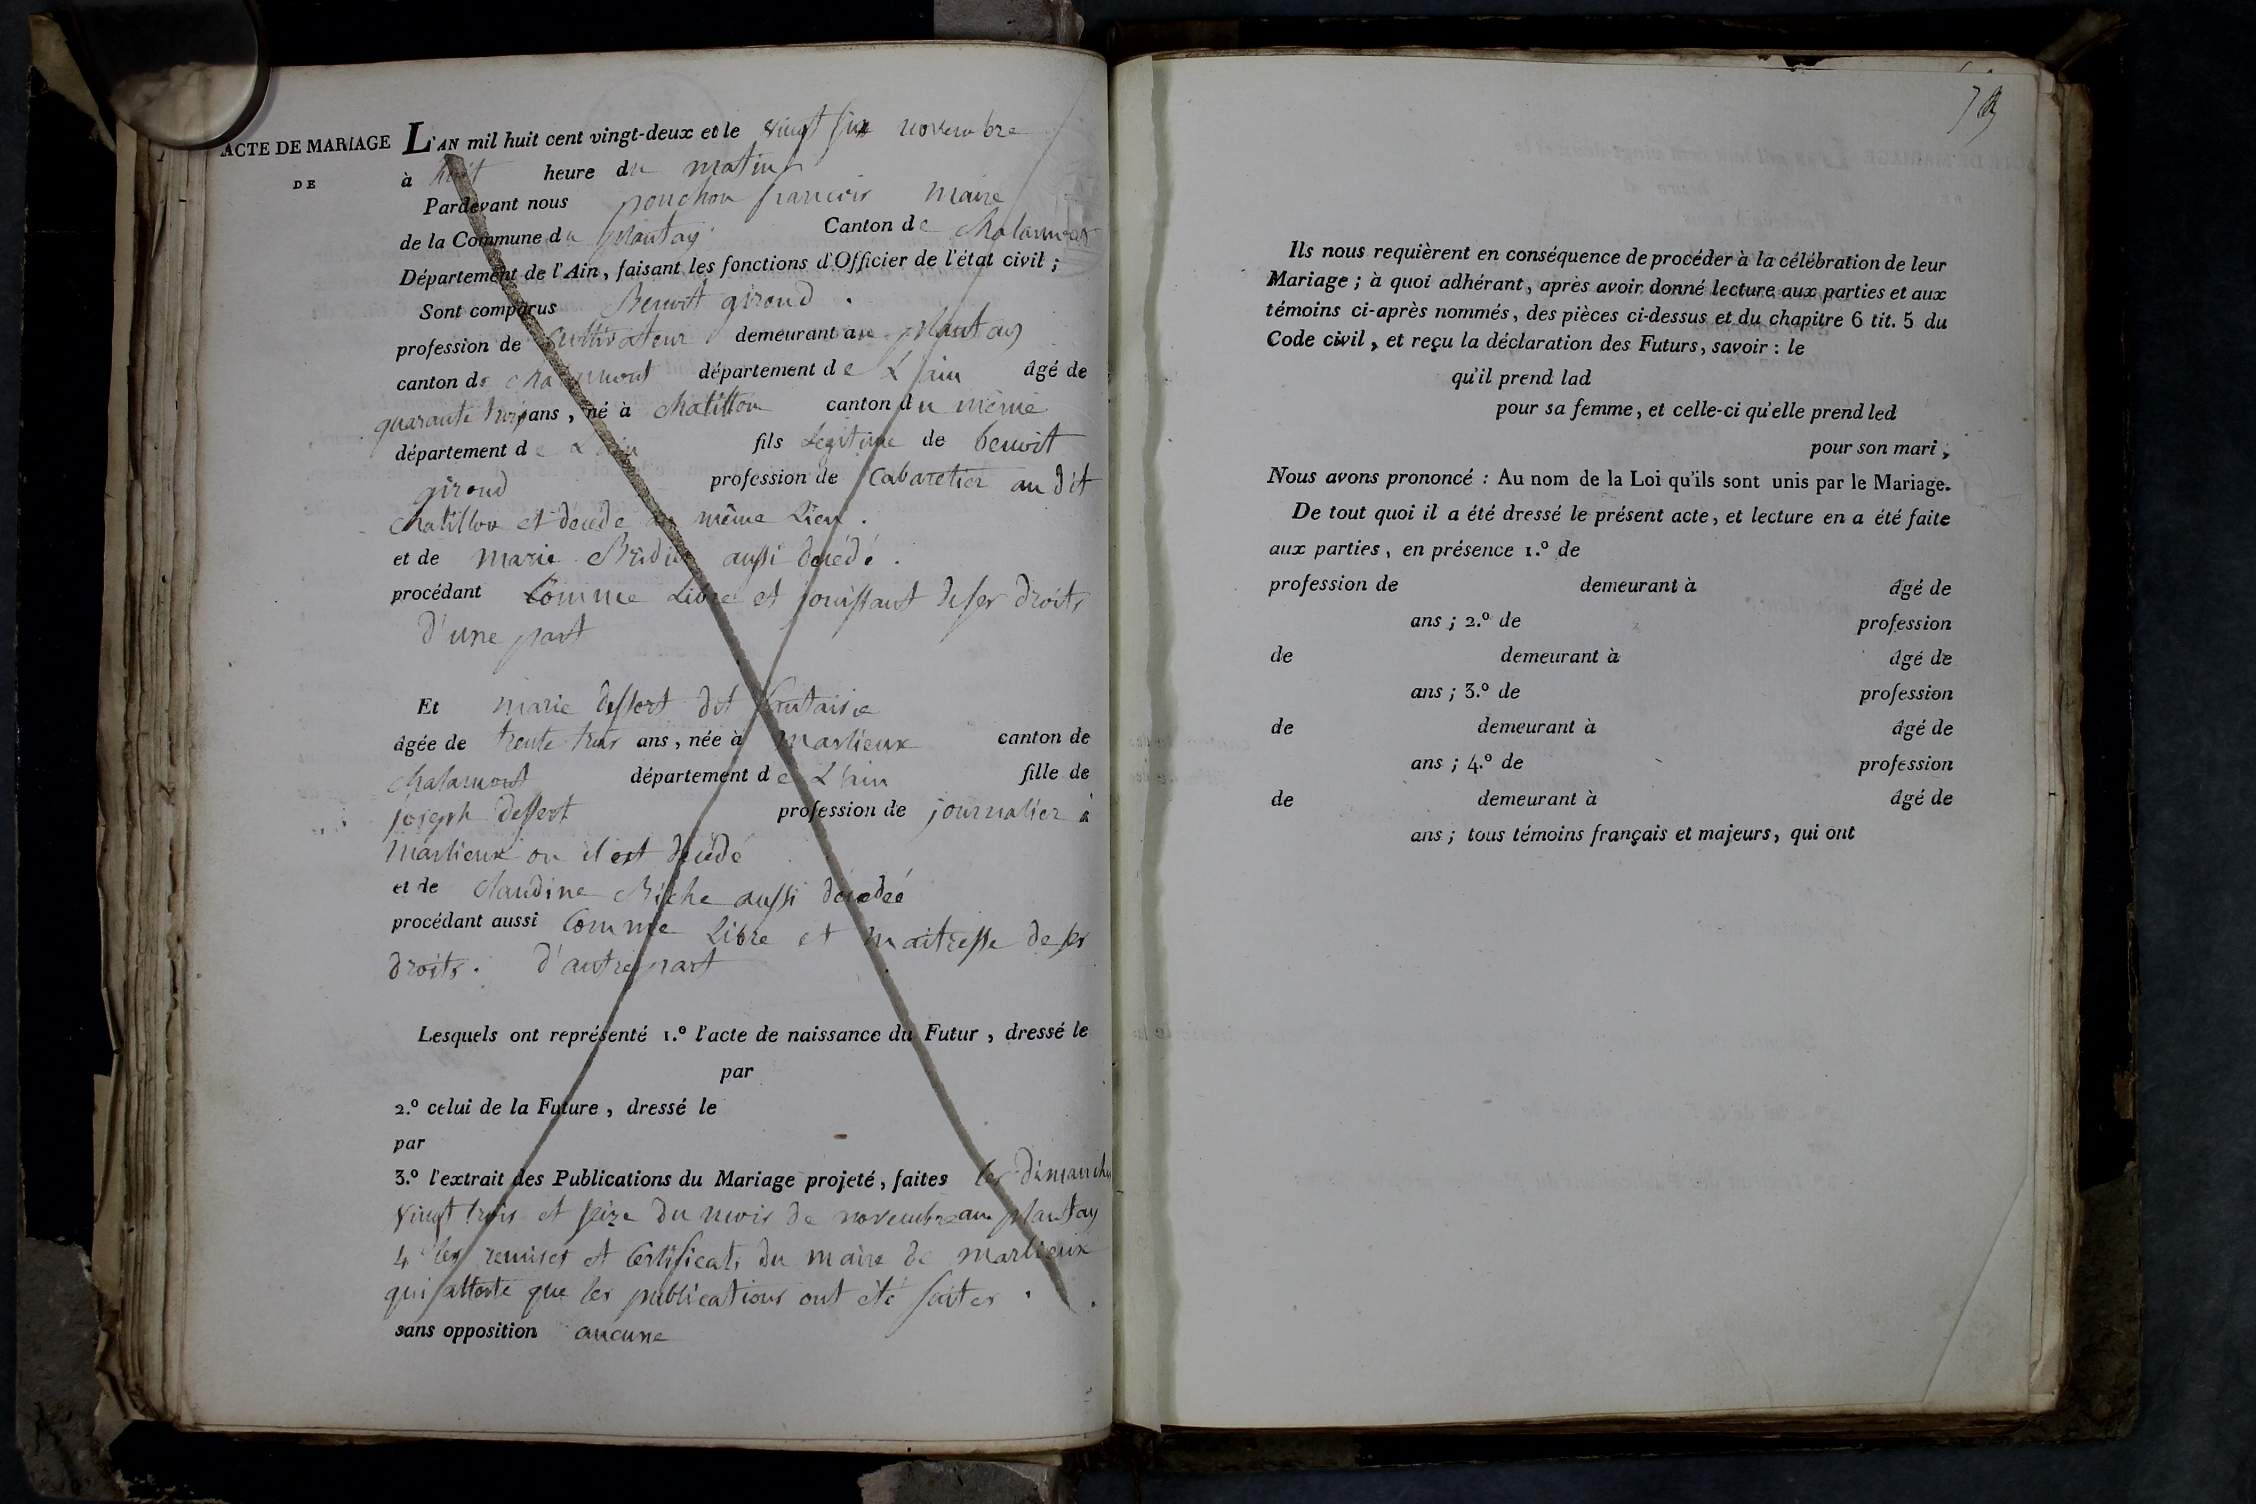 ACTE DE MARIAGE L'AN mil huit cent vingt-deux et le vingt six novembre
DE à huit heure du matin
Pardevant nous ponchon francois maire
de la Commune du plantay Canton de chalamont
Département de l'Ain, faisant les fonctions d'Officier de l'état civil ;
Sont comparus Benoit giroud .
profession de Cultivateur demeurant au plantay
canton de chalamont département de L'ain âgé de
quarante trois ans, né à chatillon canton du même
département de L'ain fils Legitime de benoit
giroud profession de Cabaretier au dit
chatillon et décédé au même Lieu .
et de marie aussi décédé .
procédant Comme Libre et jouissant de ses droits
d'une part
Et marie dessert dit fantaisie
âgée de trente trois ans, née à marlieux canton de
chalamont département de L'ain fille de
joseph dessert profession de journalier à
marlieux ou il est décédé
et de claudine Biche aussi décédeé
procédant aussi Comme Libre et maitresse de ses
droits . d'autre part
Lesquels ont représenté 1.º l'acte de naissance du Futur, dressé le
par
2.º celui de la Future, dressé le
par
3.º l'extrait des Publications du Mariage projeté, faites les dimanches
vingt trois et seize du mois de novembre au plantay
4º les remises et Certificats du maire de marlieux
qui atteste que les publications ont été faites .
sans opposition aucune
Ils nous requièrent en conséquence de procéder à la célébration de leur
Mariage ; à quoi adhérant, après avoir donné lecture aux parties et aux
témoins ci-après nommés, des pièces ci-dessus et du chapitre 6 tit. 5 du
Code civil, et reçu la déclaration des Futurs, savoir : le
qu'il prend lad
pour sa femme, et celle-ci qu'elle prend led
pour son mari ;
Nous avons prononcé : Au nom de la Loi qu'ils sont unis par le Mariage.
De tout quoi il a été dressé le présent acte, et lecture en a été faite
aux parties, en présence 1.º de
profession de demeurant à âgé de
ans ; 2.º de profession
de demeurant à âgé de
ans ; 3.º de profession
de demeurant à âgé de
ans ; 4.º de profession
de demeurant à âgé de
ans ; tous témoins français et majeurs, qui ont